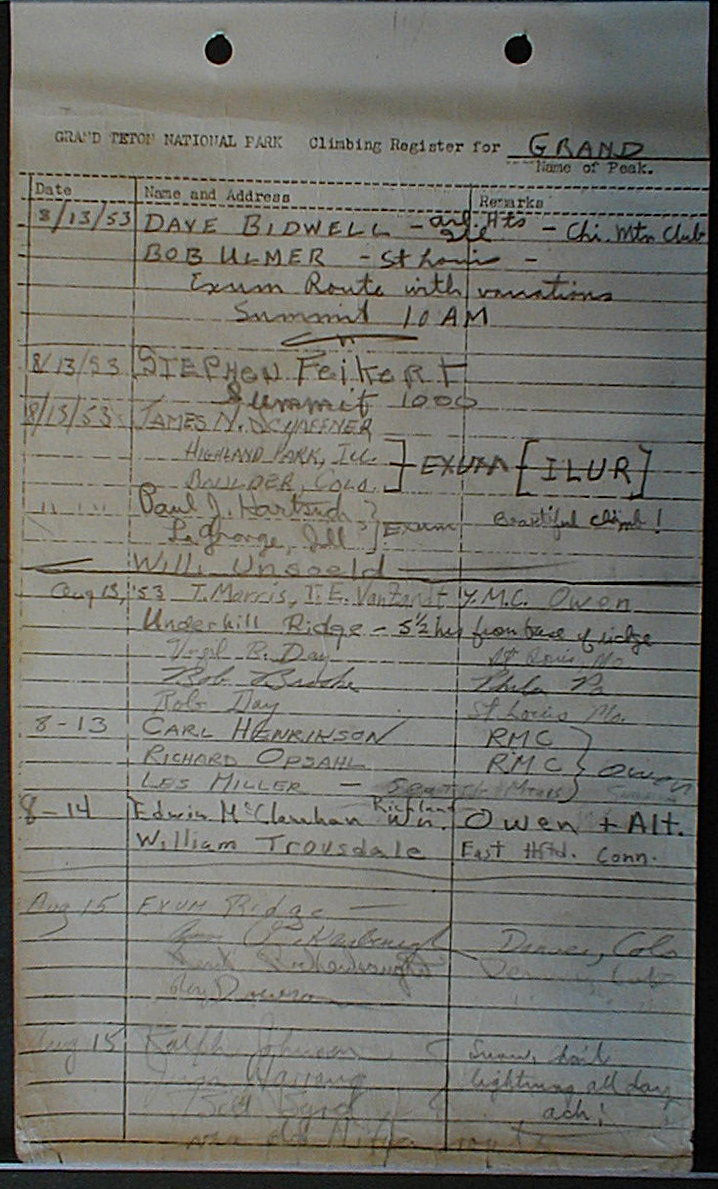 GRAND TETON NATIONAL PARK Climbing Register for GRAND
Name of Peak.
Date Name and Address Remarks
8/13/53 DAVE BIDWELL - Hts Ill - Chi. Mtn Club
BOB ULMER - St Louis -
Exum Route with variations
Summit 10 AM
8/13/53 STEPHEN Feikert
Summit 1000
8/13/53 JAMES N. SCHAFFNER
HIGHLAND PARK, ILL. ] EXUM [ILUR]
BOULDER, COLO.
" " " Paul J.
LaGrange, Ill ] Exum Beautiful climb!
Willi Unsoeld
Aug 13, '53 T. Morris, T. E. VanZandt Y.M.C. Owen
Underhill Ridge - 5½ hrs from base of ridge
Virgil R. Day St Louis, Mo
Bob Phila Pa
Rob Day St Louis Mo.
8-13 CARL HENRIKSON RMC
RICHARD OPSAHL RMC } Owen
LES MILLER -
8-14 Edwin McClanahan Richland Wn. Owen + Alt.
William Trousdale East Htfd. Conn.
Aug 15 EXUM Ridge -
Denver, Colo
Aug 15 Ralph Johnson Snow, hail
lightning all day
ach!